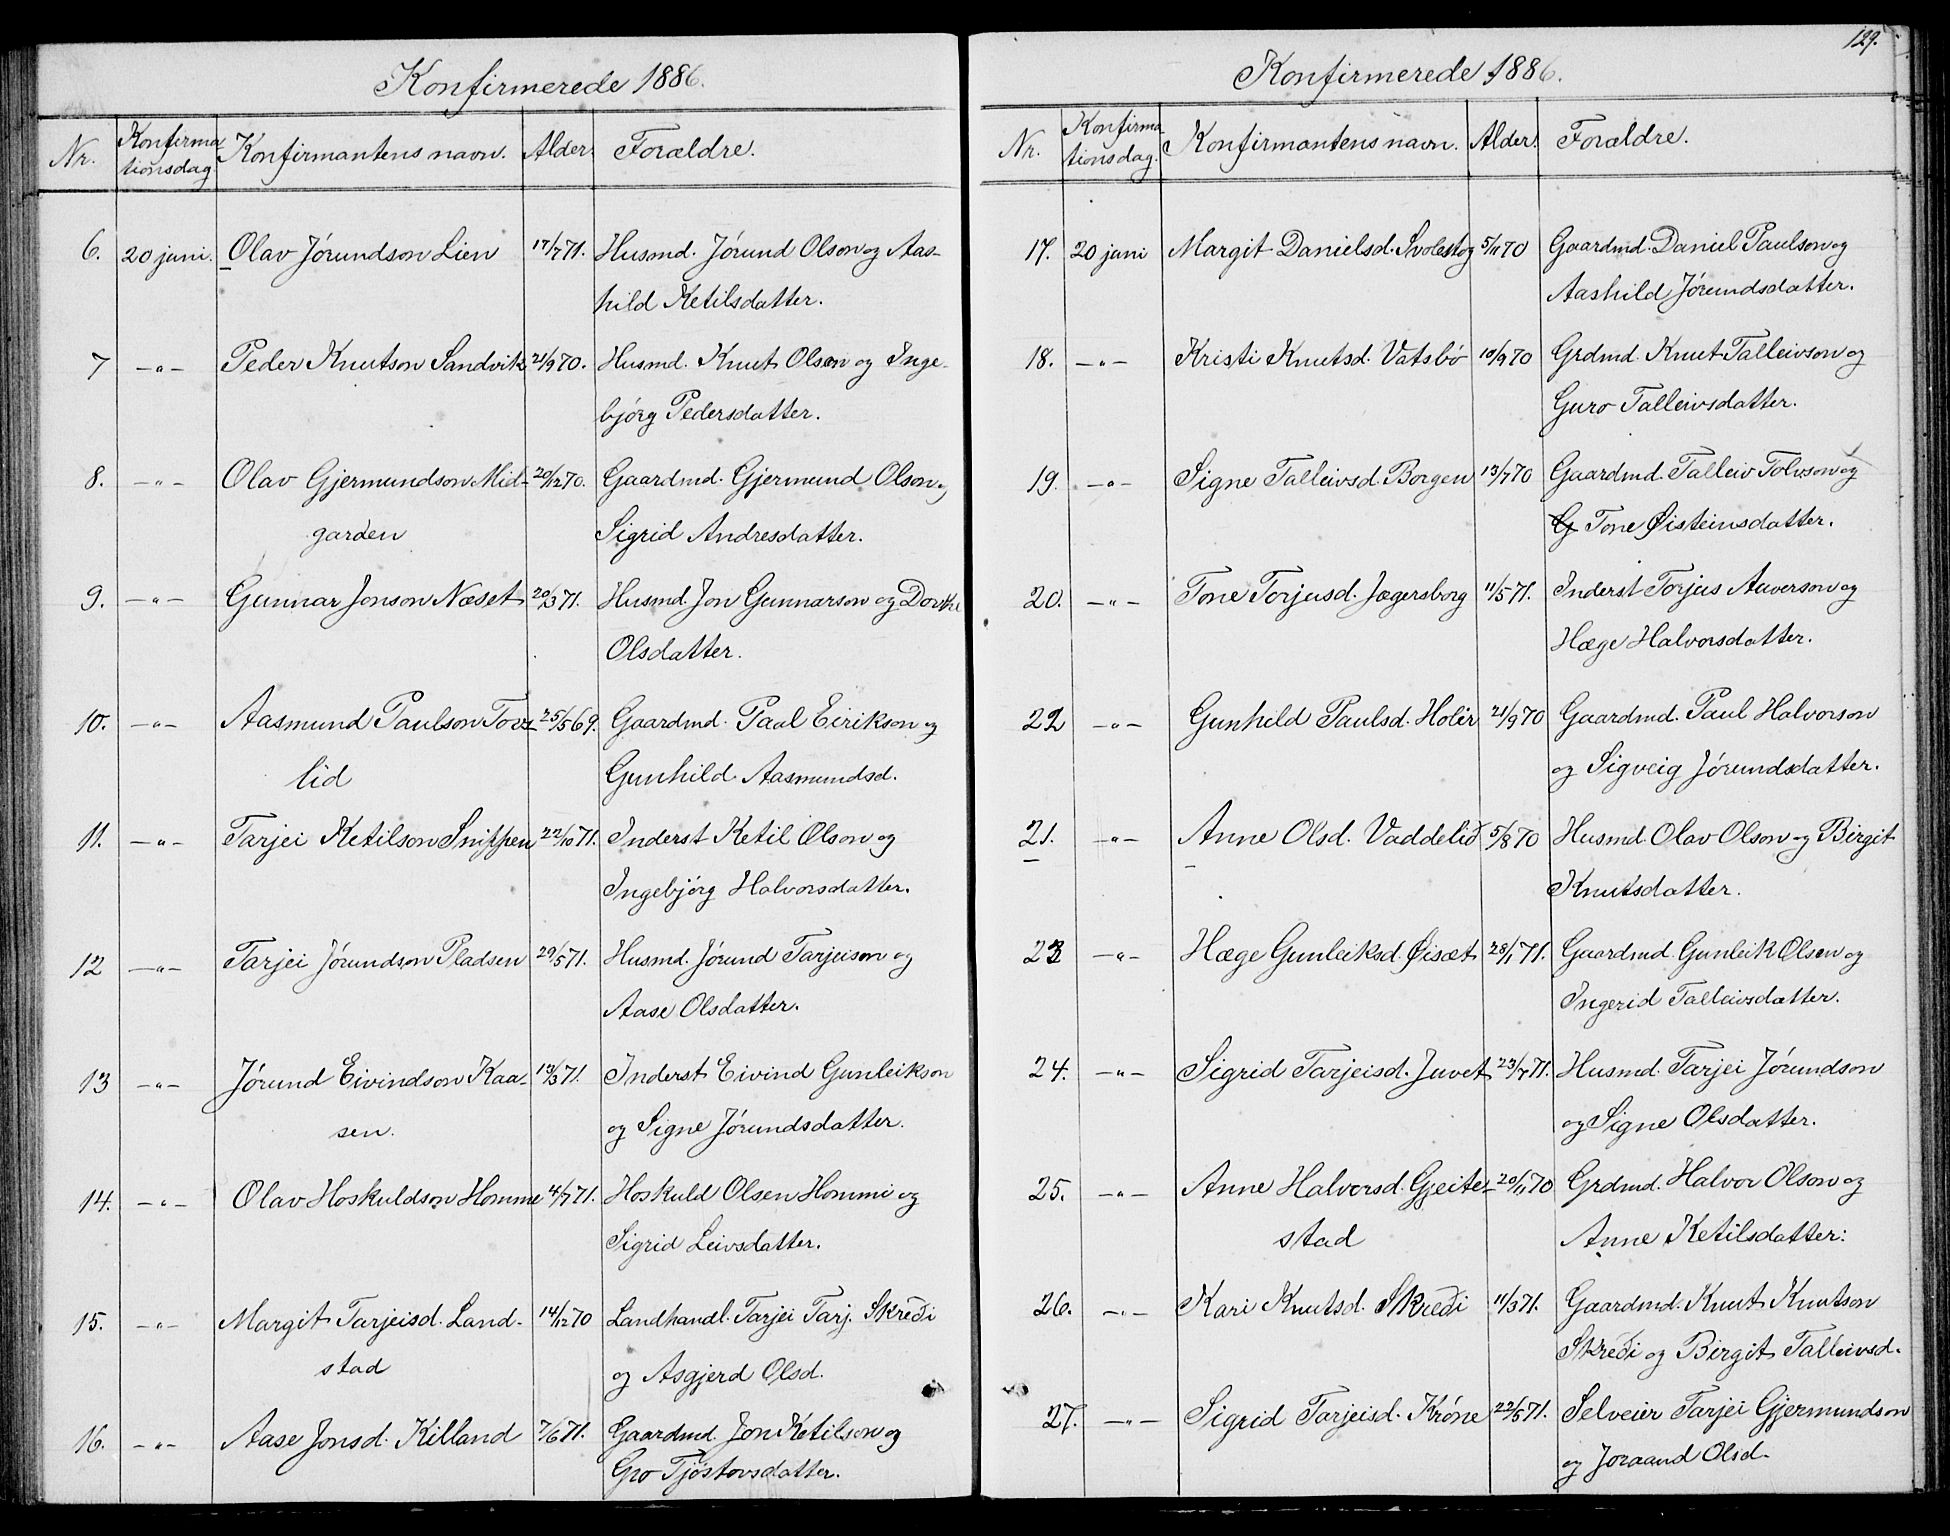 Konfirmerede 1886.
Nr. Konfirma tionsdag. Konfirmantens navn. Alder. Forældre.
6. 20 juni. Olav Jórundson Lien 17/7 71. Husmd. Jórund Olson og Aas-
hild Ketilsdatter.
7 -„- Peder Knutson Sandvik 21/9 70. Husmd. Knut Olsen og Inge-
bjórg Pedersdatter.
8. -„- Olav Gjermundson Mid- 20/12 70. Gaardmd. Gjermund Olson og
garden Sigrid Andresdatter.
9. -„- Gunnar Jonson Næset 20/3 71. Husmd. Jon Gunnarson og Dorthe
Olsdatter.
10. -„- Aasmund Paulson Tove- 25/5 69. Gaardmd. Paal Eirikson og
lid Gunhild Aasmundsd.
11. -„- Tarjei Ketilson Snippen 22/10 71. Inderst Ketil Olson og
Ingebjórg Halvorsdatter.
12 -„- Tarjei Jórundson Pladsen 29/5 71. Husmd. Jórund Tarjeison og
Aase Olsdatter.
13 -„- Jórund Eivindson Kaa- 13/3 71. Inderst Eivind Gunleikson
sen. og Signe Jórundsdatter.
14. -„- Olav Hoskuldson Homme 4/7 71. Hoskuld Olsen Hommi og
Sigrid Leivsdatter.
15. -„- Margit Tarjeisd. Land- 14/12 70 Landhandl. Tarjei Tarj. Skredi
stad og Asgjerd Olsd.
16. -„- Aase Jonsd. Killand 7/6 71. Gaardmd. Jon Ketilson og
Gro Tjóstovsdatter.
129.
Konfirmerede 1886.
Nr. Konfirma- tionsdag. Konfirmantens navn. Alder. Forældre.
17. 20 juni Margit Danielsd. Svolestog 5/11 70 Gaardmd. Daniel Paulson og
Aashild Jórundsdatter.
18. -„- Kristi Knutsd. Vatsbó 10/9 70 Grdmd. Knut Talleivson og
Guro Talleivsdatter.
19. -„- Signe Talleivsd. Borgen 13/7 70 Gaardmd. Talleiv Tolvson og
Tone Øisteinsdatter.
20. -„- Tone Torjusd. Jægersborg 11/5 71. Inderst Torjus Auverson og
Hæge Halvorsdatter.
22 -„- Gunhild Paulsd. Holir 21/9 70 Gaardmd. Paul Halvorson
og Sigveig Jórundsdatter.
21. -„- Anne Olsd. Vaddelid 5/8 70 Husmd. Olav Olson og Birgit
Knutsdatter.
23 -„- Hæge Gunleiksd. Øisæt 28/1 71. Gaardmd. Gunleik Olsen og
Ingerid Talleivsdatter.
24. -„- Sigrid Tarjeisd. Juvet 23/7 71. Husmd. Tarjei Jórundson
og Signe Olsdatter.
25. -„- Anne Halvorsd. Gjeite- 20/11 70 Grdmd. Halvor Olson og
stad Anne Ketilsdatter:
26. -„- Kari Knutsd. Skredi 11/3 71. Gaardmd. Knut Knutson
Skredi og Birgit Talleivsd.
27. -„- Sigrid Tarjeisd. Króne 22/5 71. Selveier Tarjei Gjermundson
og Joraand Olsd.